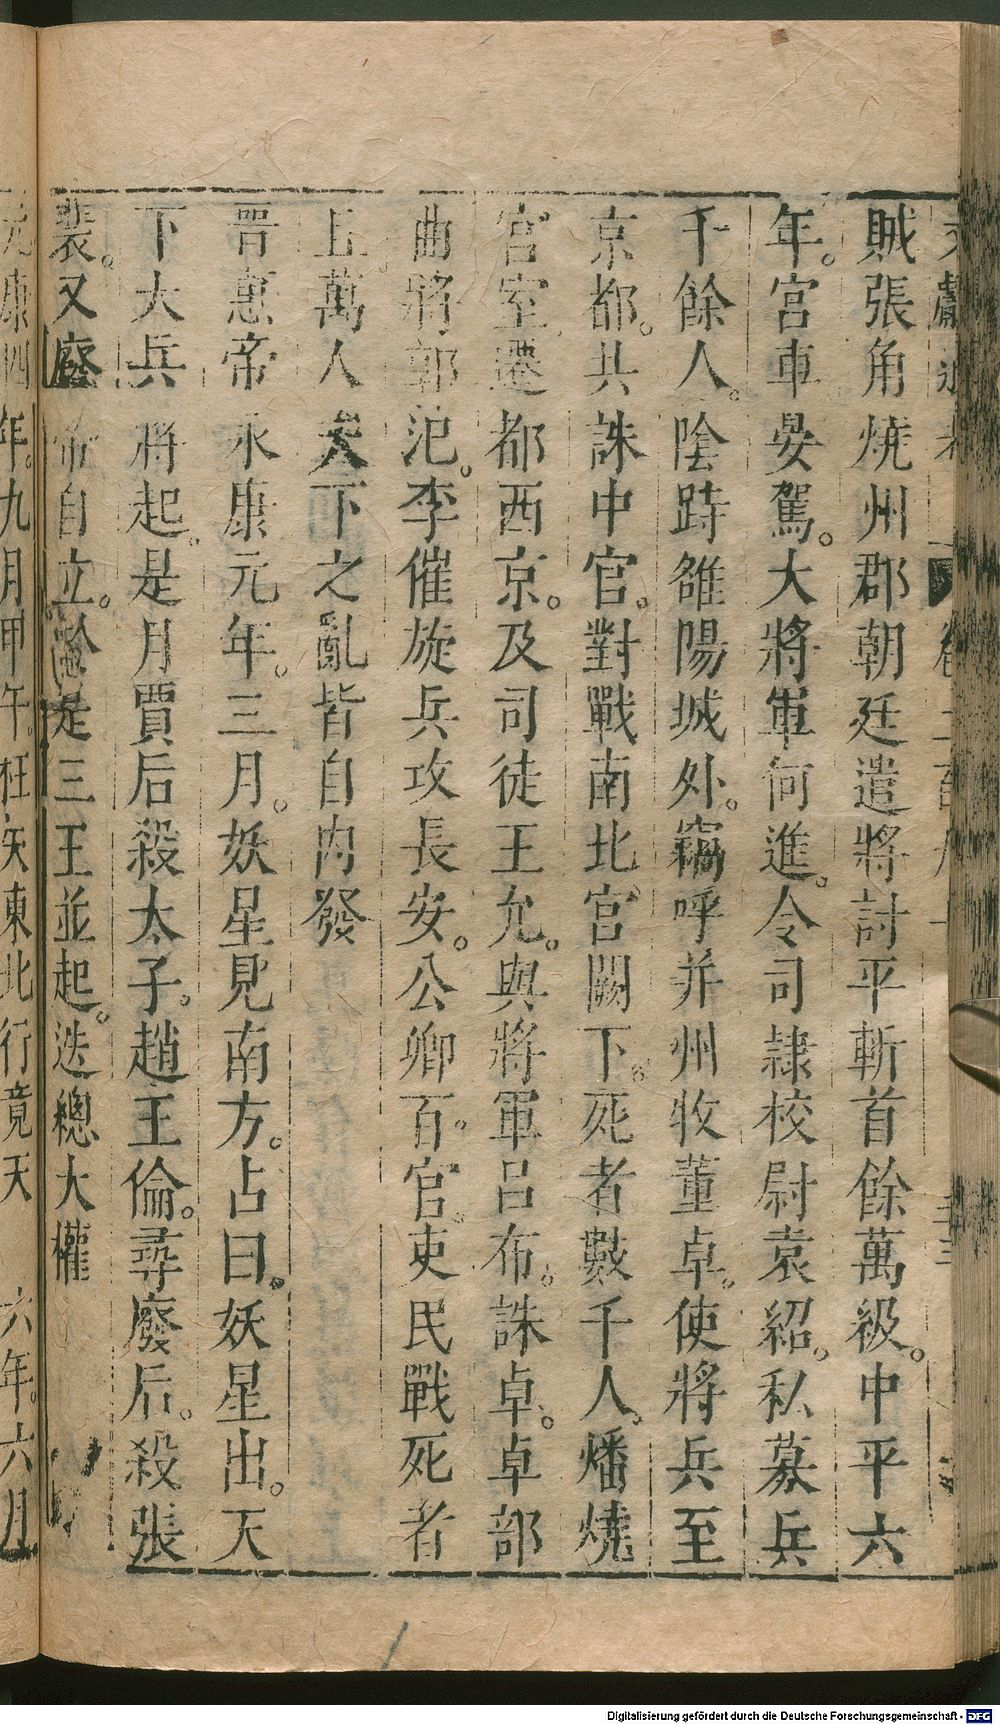 賊張角燒州郡朝廷遣將討平斬首餘萬級。中平六
年。宮車晏駕。大將軍何進。令司隷校尉袁紹。私募兵
千餘人。陰跱雒陽城外。竊呼并州牧董卓。使將兵至
京都。共誅中官。對戰南北宮闕下。死者數千人。燔燒
宮室遷都西京。及司徒王允。與將軍呂布。誅卓。卓部
曲將郭汜。李催旋兵攻長安。公卿百官吏民戰死者
且萬人天下之亂皆自內發
晋惠帝永康元年。三月。妖星見南方。占曰。妖星出。天
下大兵將起。是月賈后殺太子。趙王倫。尋廢后。殺張
裴。又廢帝自立。於是三王並起。迭總大權
元康四年。九月甲午。枉矢東北行竟天 六年。六月
Digitalisierung gefördert durch die Deutsche Forschungsgemeinschaft - DFG